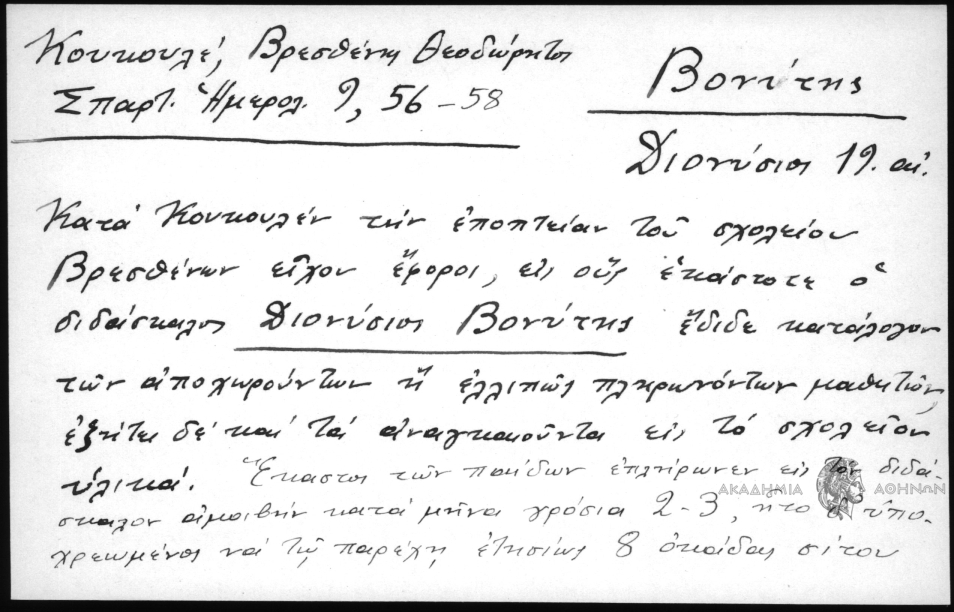 Κουκουλέ, Βρεσθένης Θεοδώρητος
Σπαρτ. Ἡμερολ. 9, 56-58
Βονίτης
Διονύσιος 19. αἰ.
Κατὰ Κουκουλὲν τὴν ἐποπτείαν τοῦ σχολείου
Βρεσθένων εἶχον ἔφοροι, εἰς οὓς ἑκάστοτε ὁ
διδάσκαλος Διονύσιος Βονίτης ἔδιδε κατάλογον
τῶν ἀποχωρούντων ἢ ἐλλιπῶς πληρωνόντων μαθητῶν,
ἐζήτει δὲ καὶ τὰ ἀναγκαιοῦντα εἰς τὸ σχολεῖον
ὑλικά. Ἕκαστος τῶν παίδων ἐπλήρωνεν εἰς τὸν διδά-
σκαλον ἀμοιβὴν κατὰ μῆνα γρόσια 2-3, ἦτο ὑπο-
χρεωμένος νὰ τῷ παρέχῃ ἐτησίως 8 ὀκάδας σίτου
ΑΚΑΔΗΜΙΑ ΑΘΗΝΩΝ